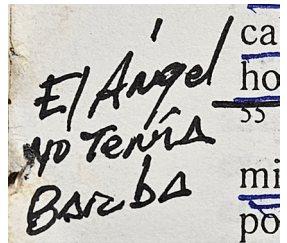 El Ángel
no Tenía
Barba
ca
ho
55
mi
po